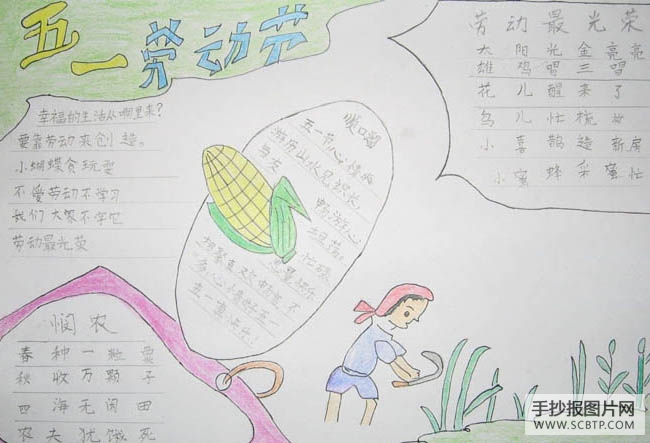 五一劳动节
幸福的生活从哪里来?
要靠劳动来创造。
小蝴蝶贪玩耍
不爱劳动不学习
我们大家不学它
劳动最光荣
顺口溜
五一节心
游历山水见
与友
五一真快乐!
劳动最光荣
太阳光金亮亮
雄鸡唱三唱
花儿醒来了
鸟儿忙梳妆
小喜鹊造新房
小蜜蜂 蜜忙
悯农
春种一粒粟
秋收万颗子
四海无闲田
农夫犹饿死
手抄报图片网
WWW.SCBTP.COM